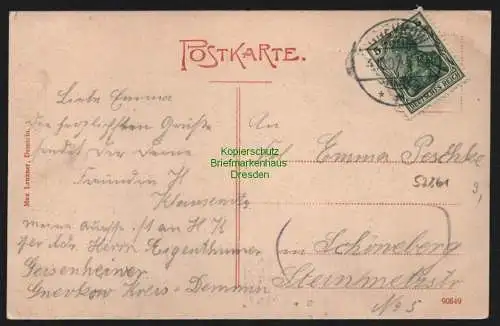 POSTKARTE.
DEUTSCHES REICH
Max Lemmer, Demmin.
Liebe Emma
die herzlichsten Grüße
sendet dir deine
Freundin H
Klausenitz
meine Adresse ist an H K
per Adr. Herrn Eigenthümer
Geisenheiner
Gnevkow Kreis-Demmin
An
Frl. Emma Peschke
in Schöneberg
Steinmetzstr
No 5
Kopierschutz
Briefmarkenhaus
Dresden
52861
90849